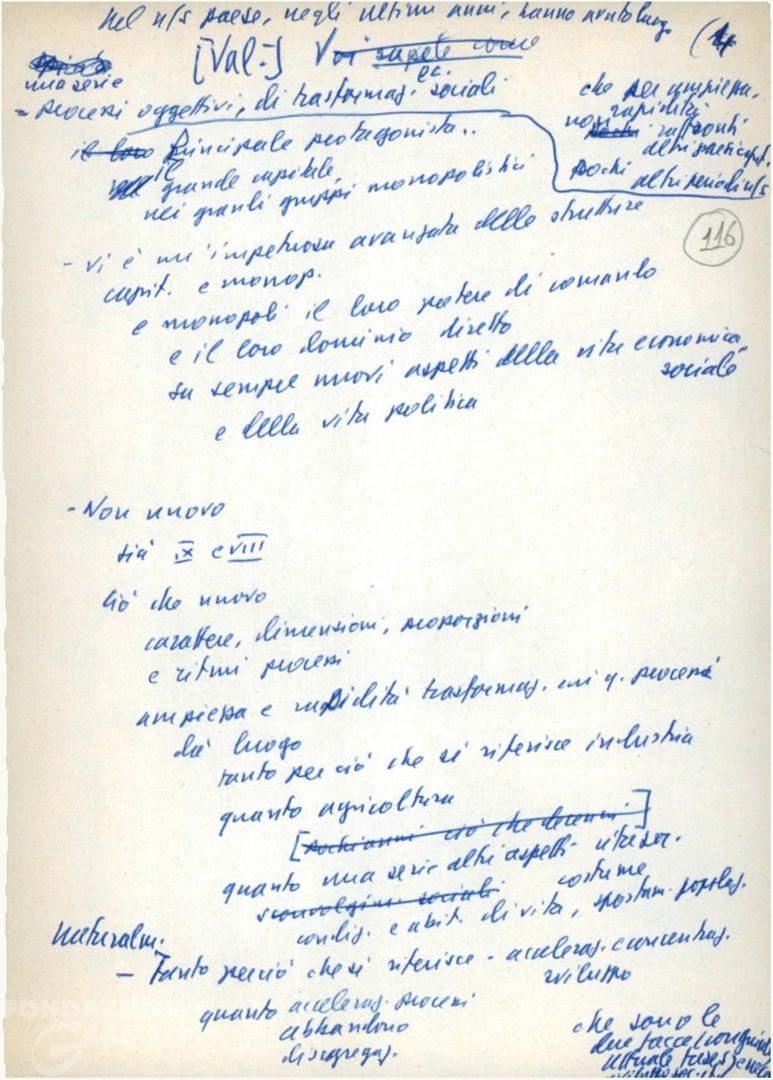 Nel n/s paese, negli ultimi anni, hanno avuto luogo
(4
[Val:] Voi sapete come
una serie
- processi oggettivi, di trasformaz. ec. sociali
che per ampiezza,
rapidità
non
Pochi raffronti
altri paesi capit.
pochi
altri periodi n/s
il loro principale protagonista..
il grande capitale
nei grandi gruppi monopolistici
116
- vi è un'impetuosa avanzata delle strutture
capit. e monop.
e monopoli il loro potere di comando
e il loro dominio diretto
su sempre nuovi aspetti della vita economica
sociale
e della vita politica
- Non nuovo
già IX e VIII
Ciò che nuovo
carattere, dimensioni, proporzioni
e ritmi processi
ampiezza e rapidità trasformaz. cui q. processi
dà luogo
tanto per ciò che si riferisce industria
quanto agricoltura
[pochi anni ciò che decenni]
quanto una serie altri aspetti vita soc.
sconvolgim. sociali costume
condiz. e abit. di vita, spostam. popolaz.
Naturalm.
- Tanto perciò che si riferisce - acceleraz. concentraz.
sviluppo
quanto acceleraz. processi
abbandono
disgregaz.
che sono le
due facce
attuale fase
FONDAZIONE
G